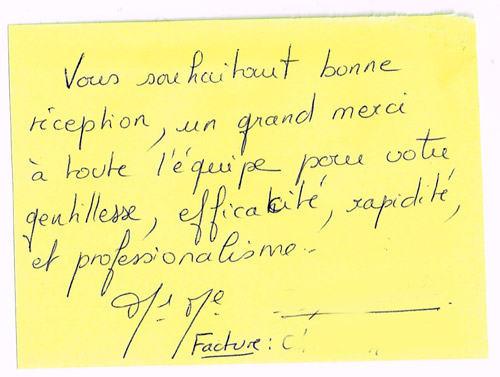 Vous souhaitant bonne
réception, un grand merci
à toute l'équipe pour votre
gentillesse, efficacité, rapidité,
et professionalisme..
Mr Me
Facture : C